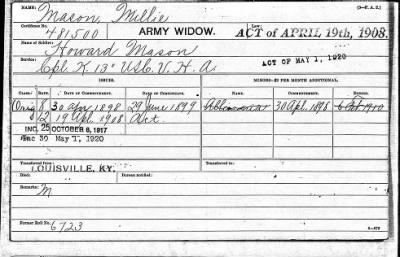 NAME: Mason, Millie (3-F.A.D.)
Certificate No. 481500 ARMY WIDOW. Law: ACT of APRIL 19th, 1908.
Name of Soldier: Howard Mason ACT OF MAY 1, 1920
Service: Cpl. K. 13" USC. V. H. A.
ISSUES. MINORS—$2 PER MONTH ADDITIONAL.
CLASS. RATE. DATE OF COMMENCEMENT. DATE OF CERTIFICATE. NAME. COMMENCED. ENDING.
Orig 8 30 Apr 1898 29 June 1899 30 Apl. 1898 6 Oct 1910
12 19 Apl. 1908 Act.
INC. 25 OCTOBER 6, 1917
Inc 30 May 1, 1920
Transferred from LOUISVILLE, KY. Transferred to
Died: Bureau notified:
Remarks: M
Former Roll No. 6723